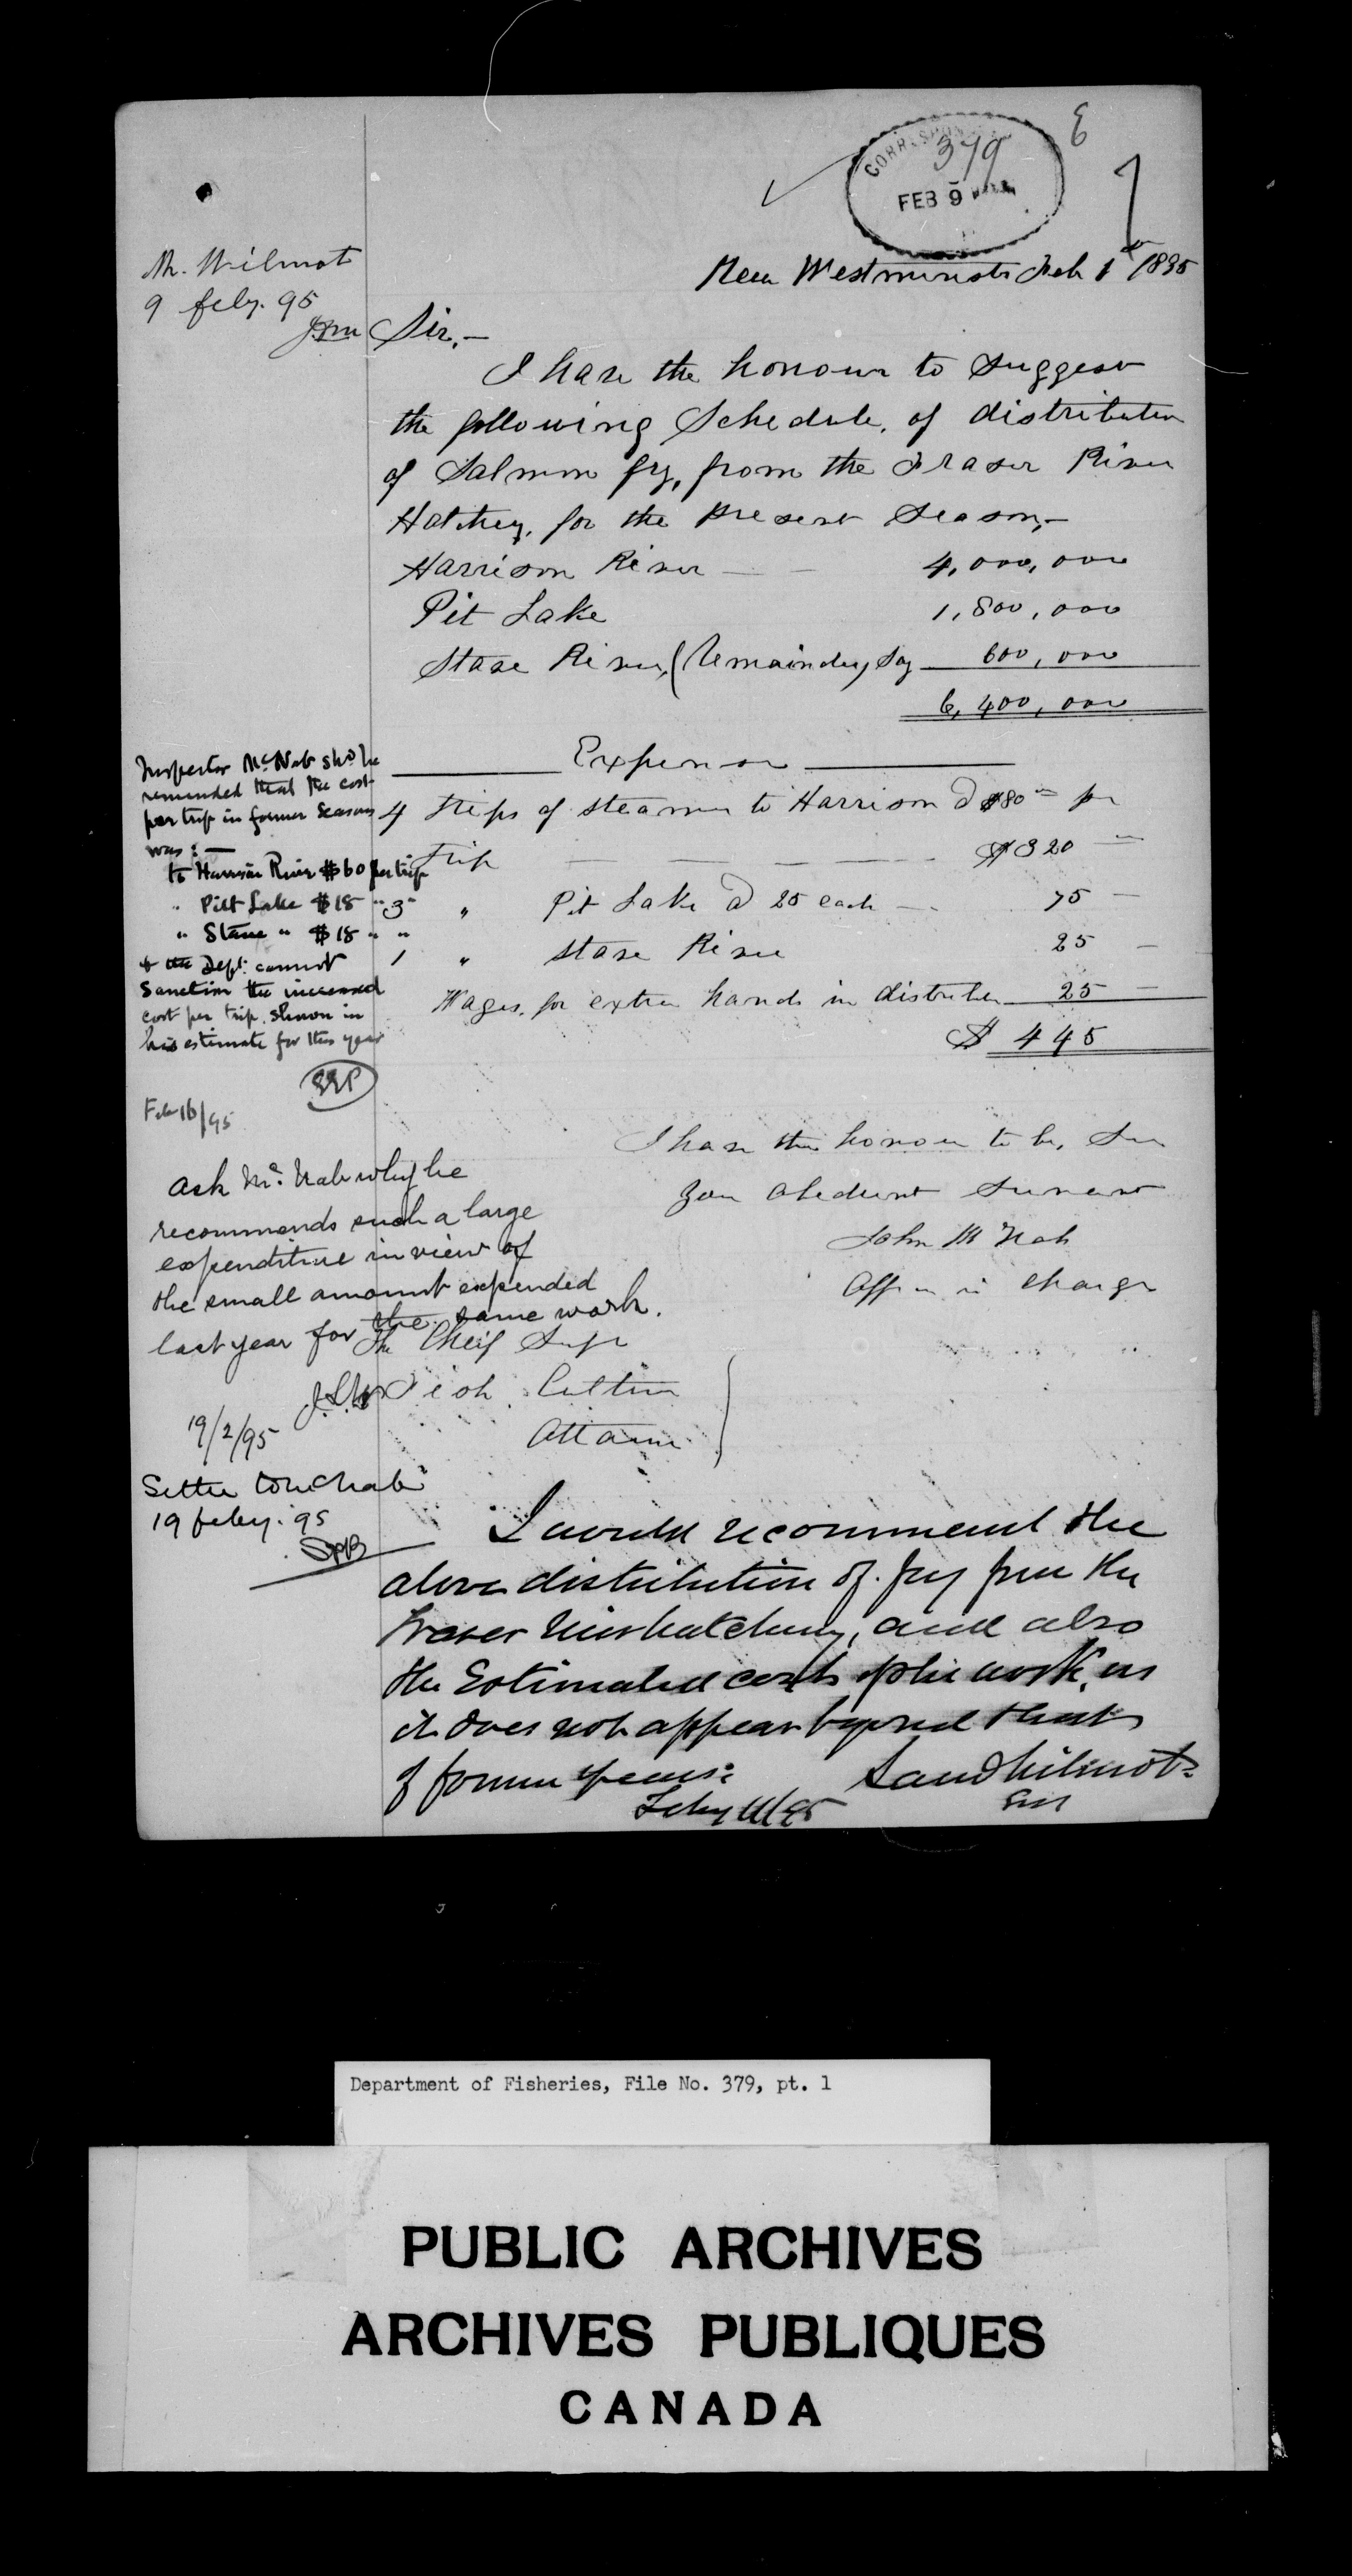 CORRESPON
379
FEB 9
E
1
Mr. Wilmot
9 feby. 95
New Westminster Feb 1st 1895
Sir,—
I have the honour to suggest
the following Schedule, of distribution
of Salmon fry, from the Fraser River
Hatchery, for the present season,—
Harrison River — — 4,000,000
Pit Lake 1,800,000
Stave River, (Remainder) Say 600,000
6,400,000
Expenses
4 trips of steamer to Harrison @ $80 per
trip — — — — $320 —
3 " Pit Lake @ 25 each — 75 —
1 " Stave River 25 —
Wages, for extra hands in distribution 25 —
$ 445
Inspector McNab shd be
reminded that the cost
per trip in former seasons
was: —
to Harrison River $60 per trip
" Pitt Lake $18 " "
" Stave " $18 " "
& the Dept. cannot
sanction the increased
cost per trip, shown in
his estimate for this year
Feb 16/95
I have the honour to be, Sir
Your Obedient Servant
John McNab
Officer in Charge
Ask McNab why he
recommends such a large
expenditure in view of
the small amount expended
last year for the same work.
19/2/95
The Cheif Supt
Fish Culture
Ottawa
Letter to McNab
19 feby. 95
I would recommend the
above distribution of fry from the
Fraser River hatchery, and also
the Estimated costs of the work, as
it does not appear beyond that
of former years.
Saml Wilmot
Feby 11/95
Department of Fisheries, File No. 379, pt. 1
PUBLIC ARCHIVES
ARCHIVES PUBLIQUES
CANADA